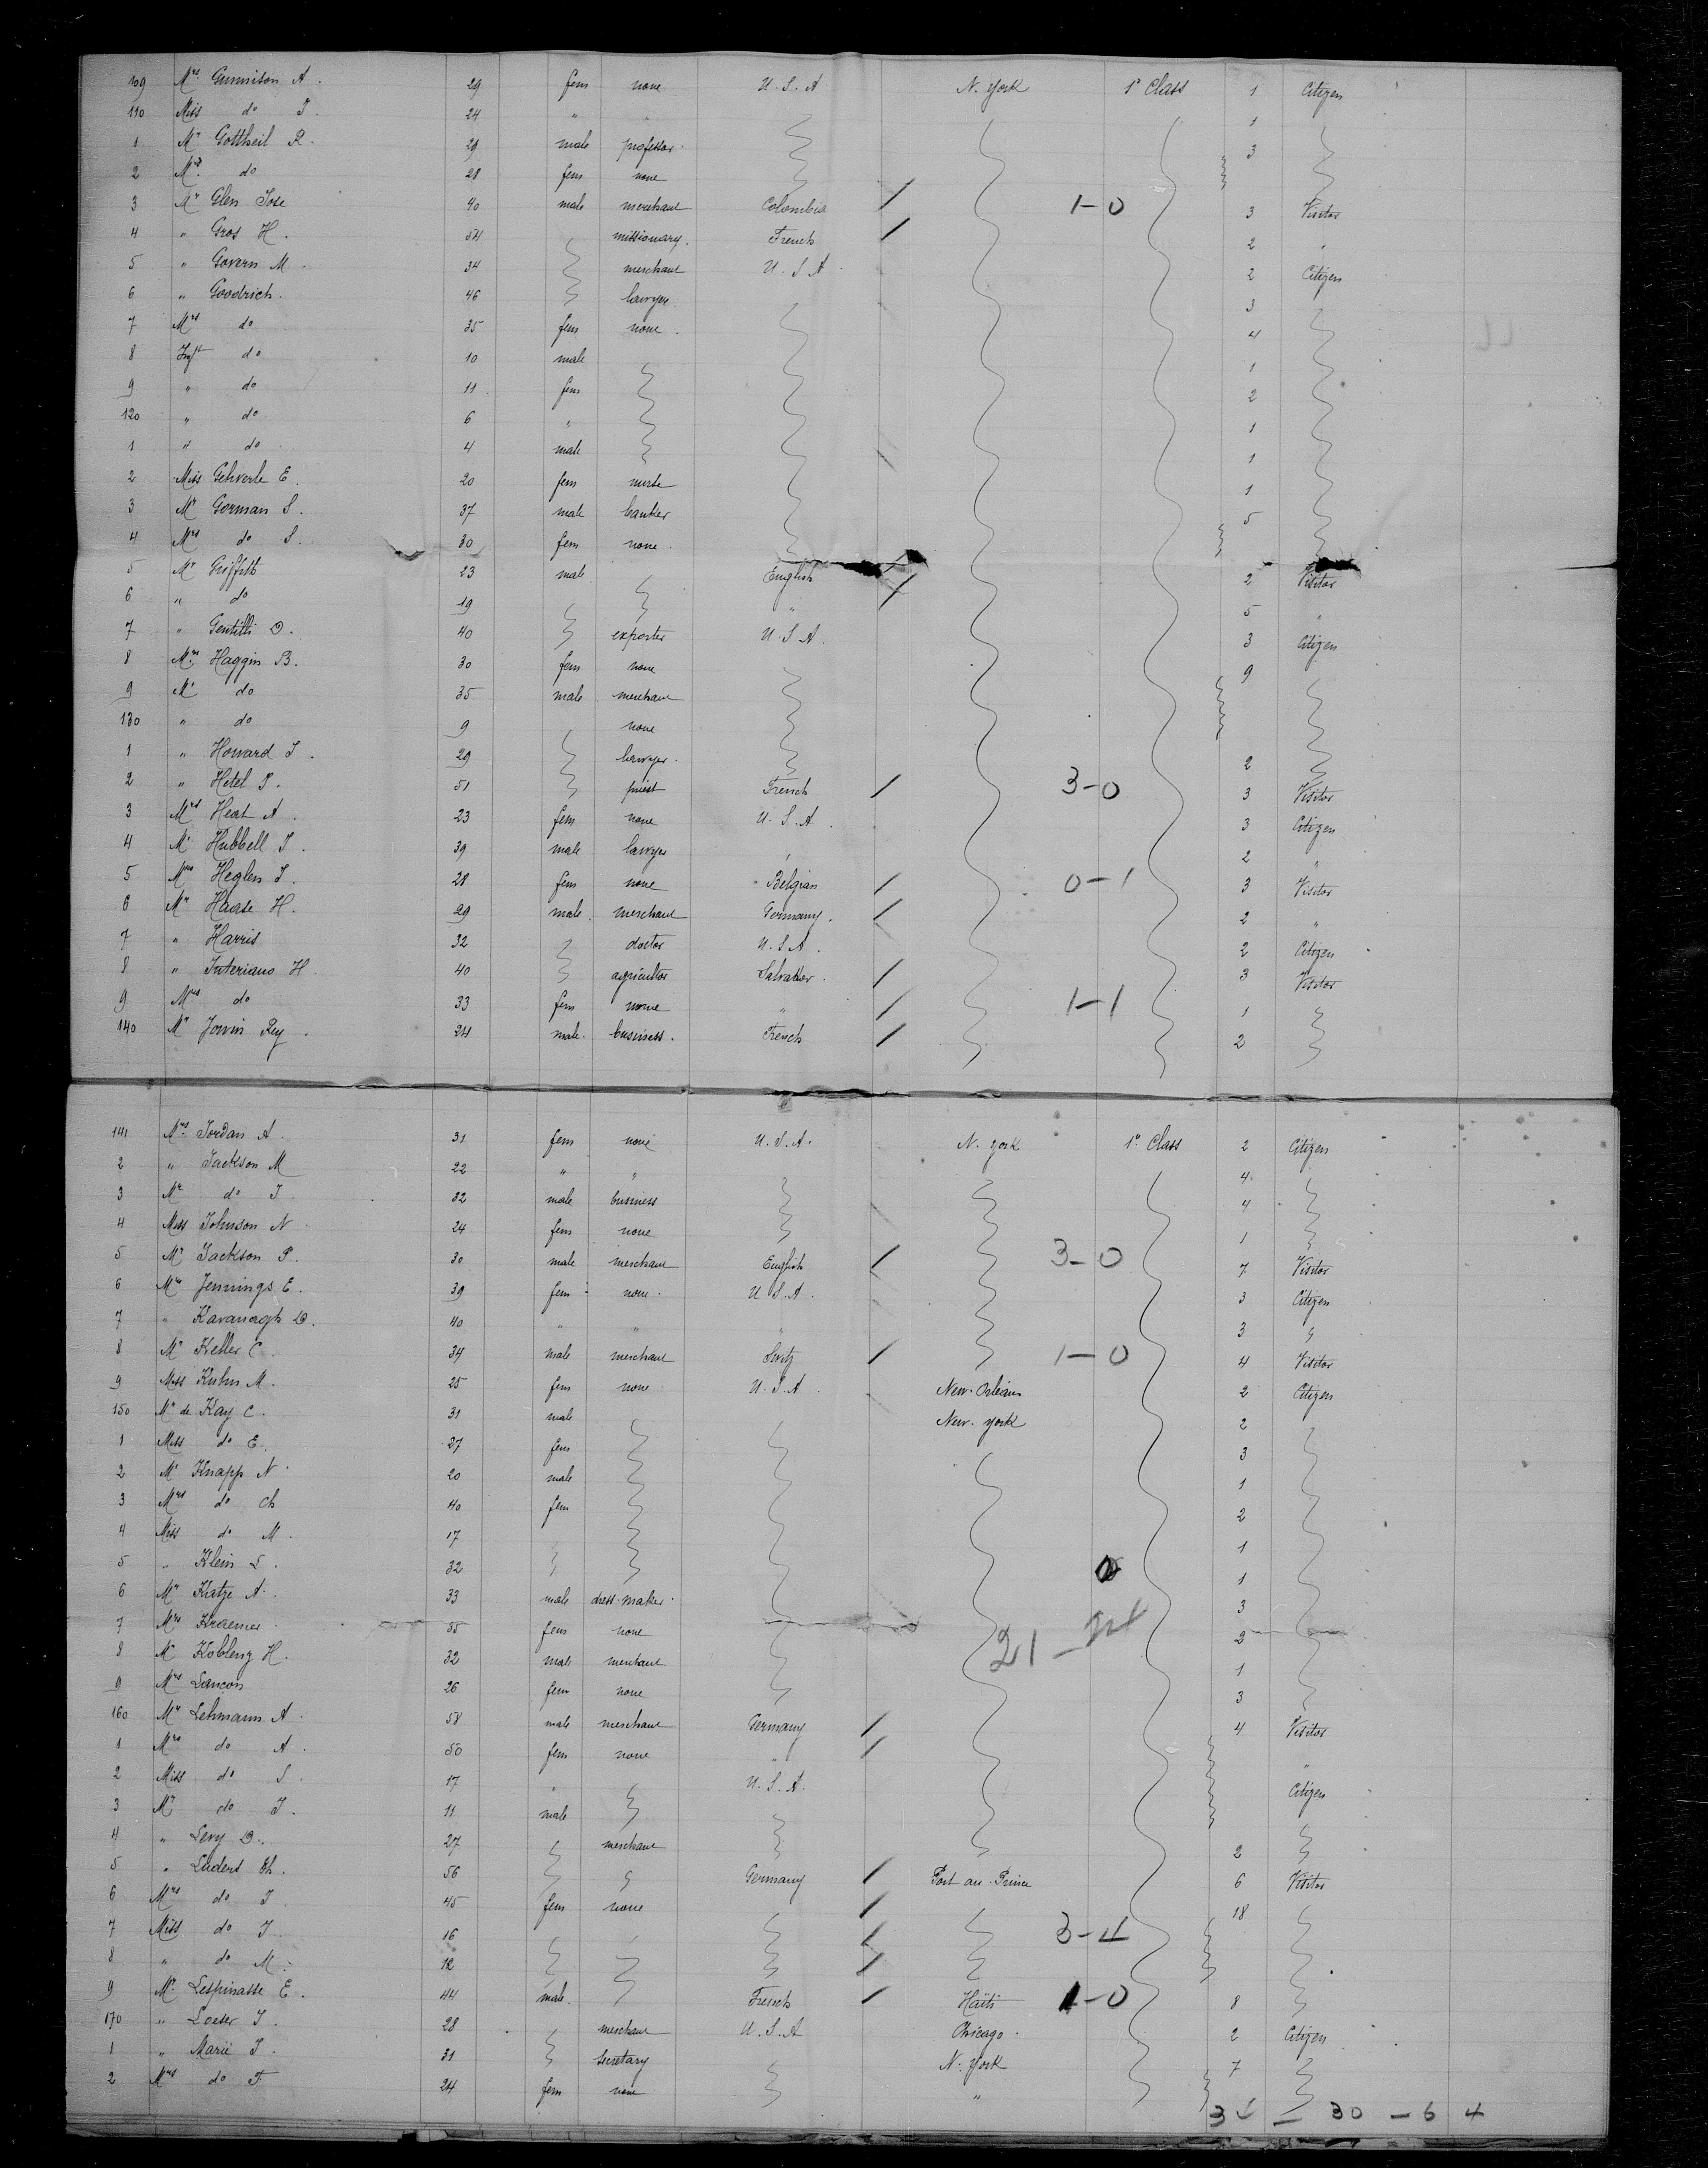 109 Mrs. Gunnison A. 29 fem none U.S.A N. York 1r Class 1 Citizen
110 Miss do J. 24 " " 1
1 Mr Gottheil R. 29 male professor 3
2 Mrs. do 28 fem none
3 Mr Glen Jose 40 male merchant Colombia / 1-0 3 Visitor
4 " Gros H. 54 missionary. French / 2 "
5 " Govern M. 34 merchant U.S.A. 2 Citizen
6 " Goodrich. 46 lawyer 3
7 Mrs do 35 fem none. 4
8 Inft do 10 male 1
9 " do 11. fem 2
120 " do 6 " 1
1 " do 4 male 1
2 Miss Gehverle E. 20 fem nurse 1
3 Mr Gorman S. 37 male banker 5
4 Mrs do S. 30 fem none.
5 Mr Griffith 23 male English / 2 Visitor
6 " do 19 " / 5 "
7 " Gentilli D. 40 exporter U.S.A. 3 Citizen
8 Mrs Haggin B. 30 fem none 9
9 Mr do 35 male merchant
130 " do 9 none
1 " Howard J. 29 lawyer. 2
2 " Hetel P. 51 priest French / 3-0 3 Visitor
3 Mrs Heat A. 23 fem none U.S.A. 3 Citizen
4 Mr Hubbell J. 39 male lawyer " 2 "
5 Mrs Heglen J. 28 fem none Belgian / 0-1 3 Visitor
6 Mr Haase H. 29 male. merchant Germany. / 2 "
7 " Harris 32 doctor U.S.A. 2 Citizen
8 " Interiano H. 40 agricultor Salvador. / 3 Visitor
9 Mrs do 33 fem none " / 1-1 1
140 Mr Jouvin Rey. 24 male. business. French / 2
141 Mrs. Jordan A. 31 fem none U.S.A. N. York 1r Class 2 Citizen
2 " Jackson M 22 " " 4.
3 Mr do J 32 male business 4
4 Miss Johnson N 24 fem none 1
5 Mr Jackson P. 30 male merchant English / 3-0 7 Visitor
6 Mrs Jennings E. 39 fem none. U.S.A. 3 Citizen
7 " Kavanagh D. 40 " " " 3
8 Mr Keller C. 34 male merchant Switz / 1-0 4 Visitor
9 Miss Kuhn M. 25 fem none. U.S.A. New-Orleans 2 Citizen
150 Mr de Kay C. 31 male New-York 2
1 Miss do E. 27 fem 3
2 Mr Knapp N. 20 male 1
3 Mrs do Ch 40 fem 2
4 Miss do M. 17 1
5 " Klein S. 32 1
6 Mr Katze A. 33 male dress-maker. 3
7 Mrs Kraemer 35 fem none 21- 2
8 Mr Koblenz H. 32 male merchant 1
9 Mrs Lançon 26 fem none 3
160 Mr Lehmann A. 58 male merchant Germany / 4 Visitor
1 Mrs do A. 50 fem none " / "
2 Miss do S. 17 " U.S.A. Citizen
3 Mr do J. 11 male
4 " Levy D. 27 merchant 2
5 " Luders Th. 56 Germany / Port au-Prince 6 Visitor
6 Mrs do J 45 fem none / 18
7 Miss do J. 16 / 3-4
8 " do M. 12 /
9 Mr. Lespinasse E. 44 male. French / Haiti 1-0 8
170 " Loeser J. 28 merchant U.S.A Chicago. 2 Citizen
1 " Marie J. 31 secretary N. York 7
2 Mrs do F. 24 fem none "
34 - 30 - 64